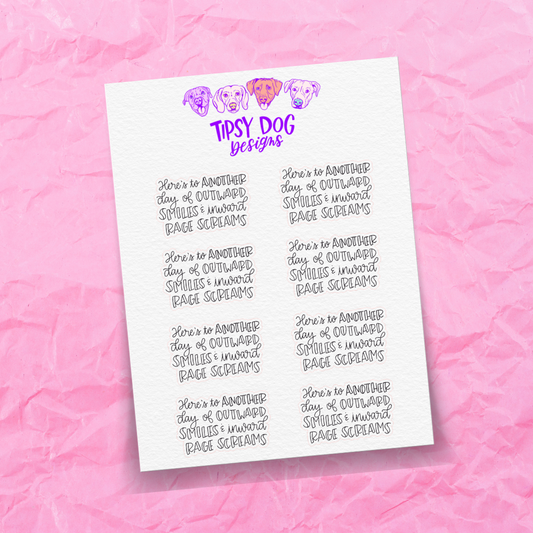 TIPSY DOG
Designs
Here's to ANOTHER
day of OUTWARD
SMILES & inward
RAGE SCREAMS
Here's to ANOTHER
day of OUTWARD
SMILES & inward
RAGE SCREAMS
Here's to ANOTHER
day of OUTWARD
SMILES & inward
RAGE SCREAMS
Here's to ANOTHER
day of OUTWARD
SMILES & inward
RAGE SCREAMS
Here's to ANOTHER
day of OUTWARD
SMILES & inward
RAGE SCREAMS
Here's to ANOTHER
day of OUTWARD
SMILES & inward
RAGE SCREAMS
Here's to ANOTHER
day of OUTWARD
SMILES & inward
RAGE SCREAMS
Here's to ANOTHER
day of OUTWARD
SMILES & inward
RAGE SCREAMS